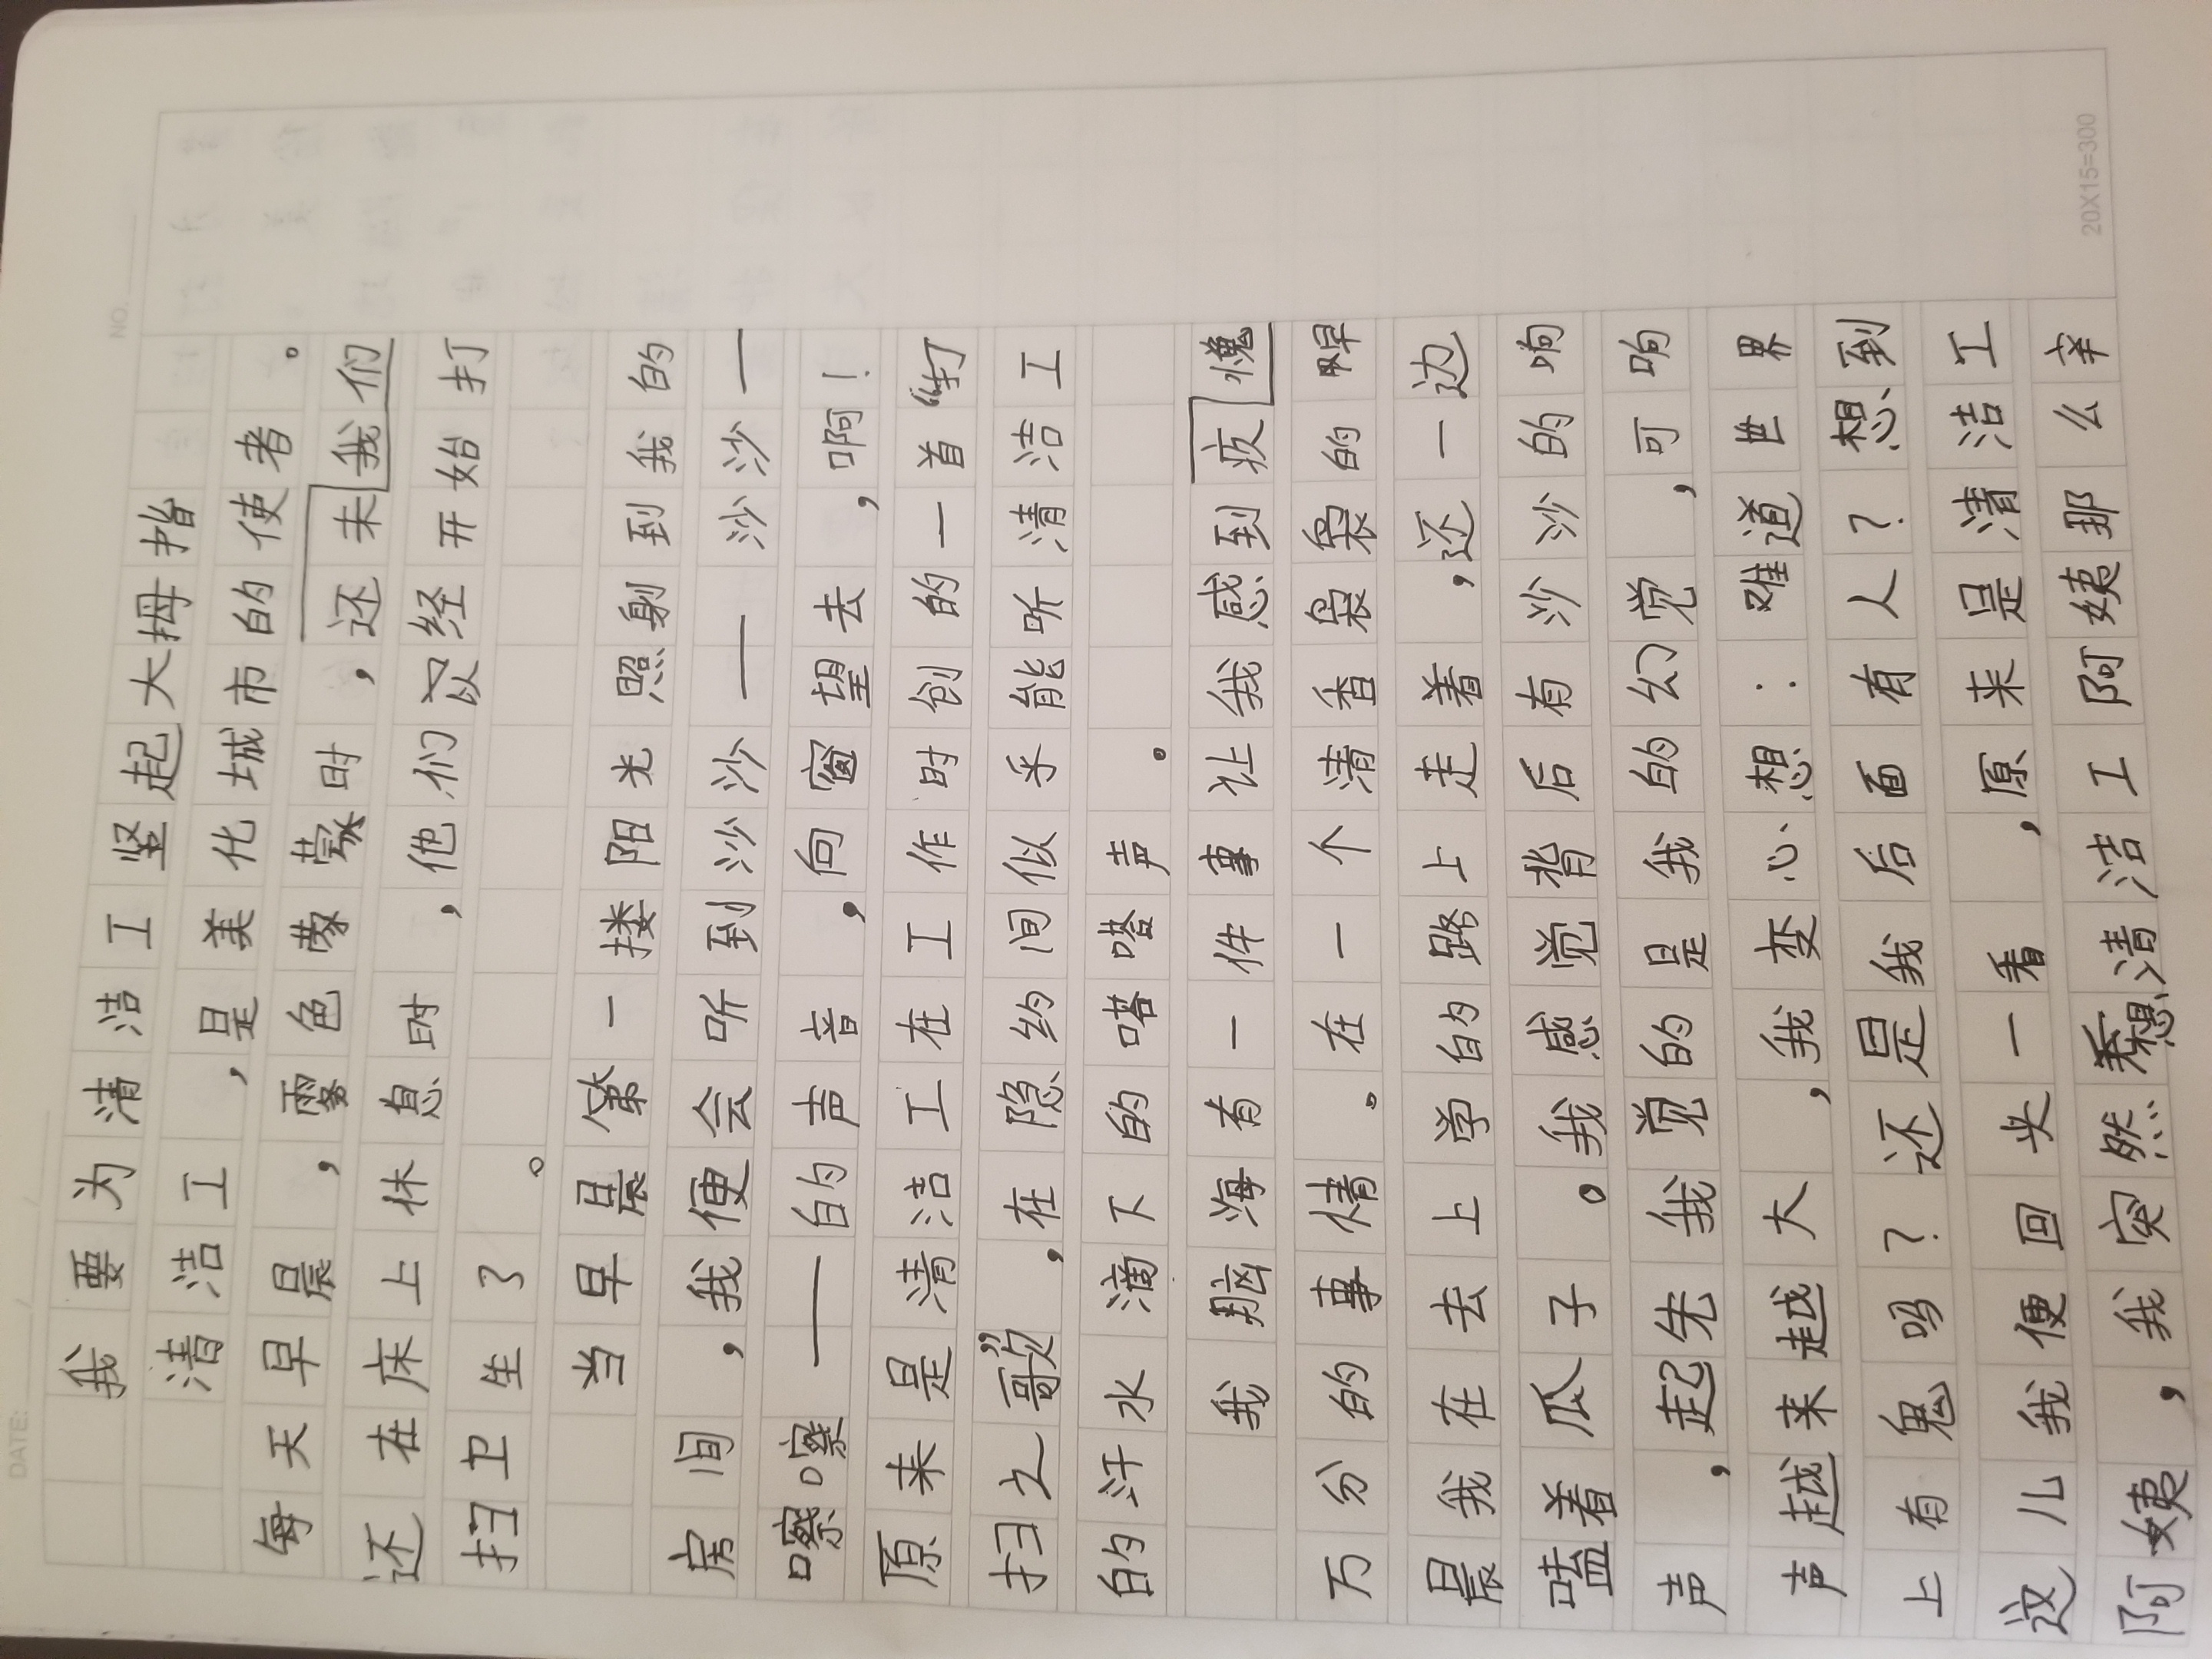 我要为清洁工竖起大拇指
清洁工，是美化城市的使者。
每天早晨，雾色蒙蒙时，还未我们
还在床上休息时，他们以经开始打
扫卫生了。
当早晨第一搂阳光照射到我的
房间，我便会听到沙沙——沙沙—
嚓嚓——的声音，向窗望去，啊！
原来是清洁工在工作时创的一首“打
扫之歌”，在隐约间似乎能听清洁工
的汗水滴下的嗒嗒声。
我脑海有一件事让我感到疚愧
万分的事情。在一个清香袅袅的早
晨我在去上学的路上走着，还一边
嗑着瓜子。我感觉背后有沙沙的响
声，起先我觉的是我的幻觉，可响
声越来越大，我变心想：难道世界
上有鬼吗？还是我后面有人？想到
这儿我便回头一看，原来是清洁工
阿姨，我突然想清洁工阿姨那么辛
DATE: / /
NO.
20X15=300